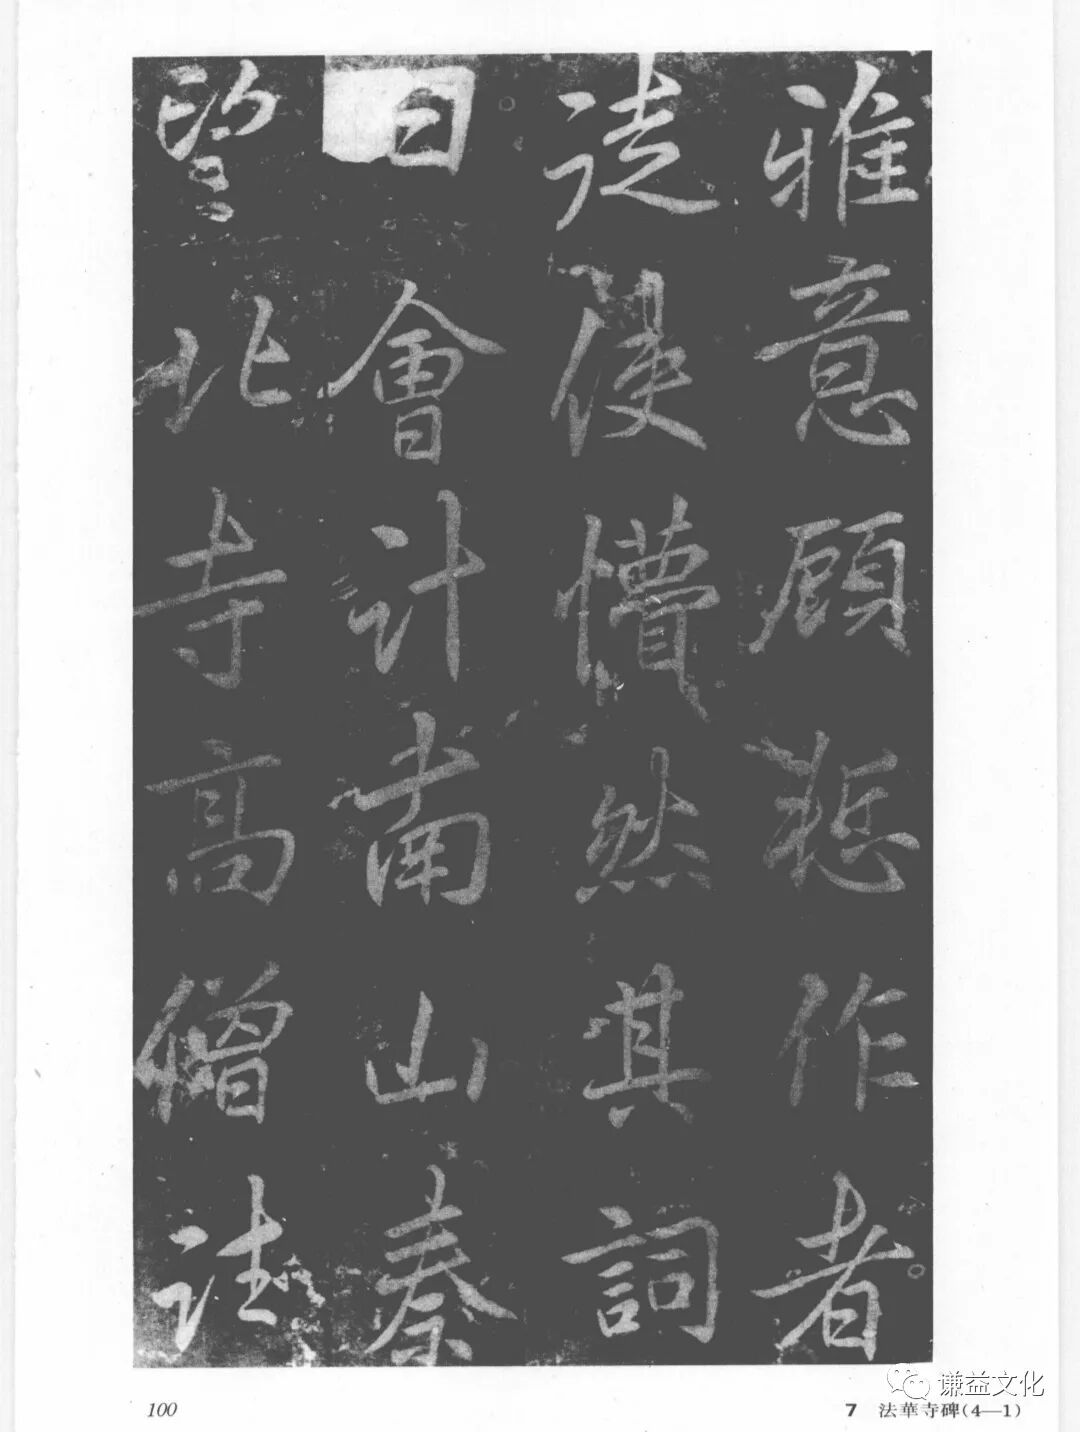 雅意顧慙作者
徒懵然其詞
曰會計南山秦
望北寺高僧往
100
7 法華寺碑(4—1)
谦益文化